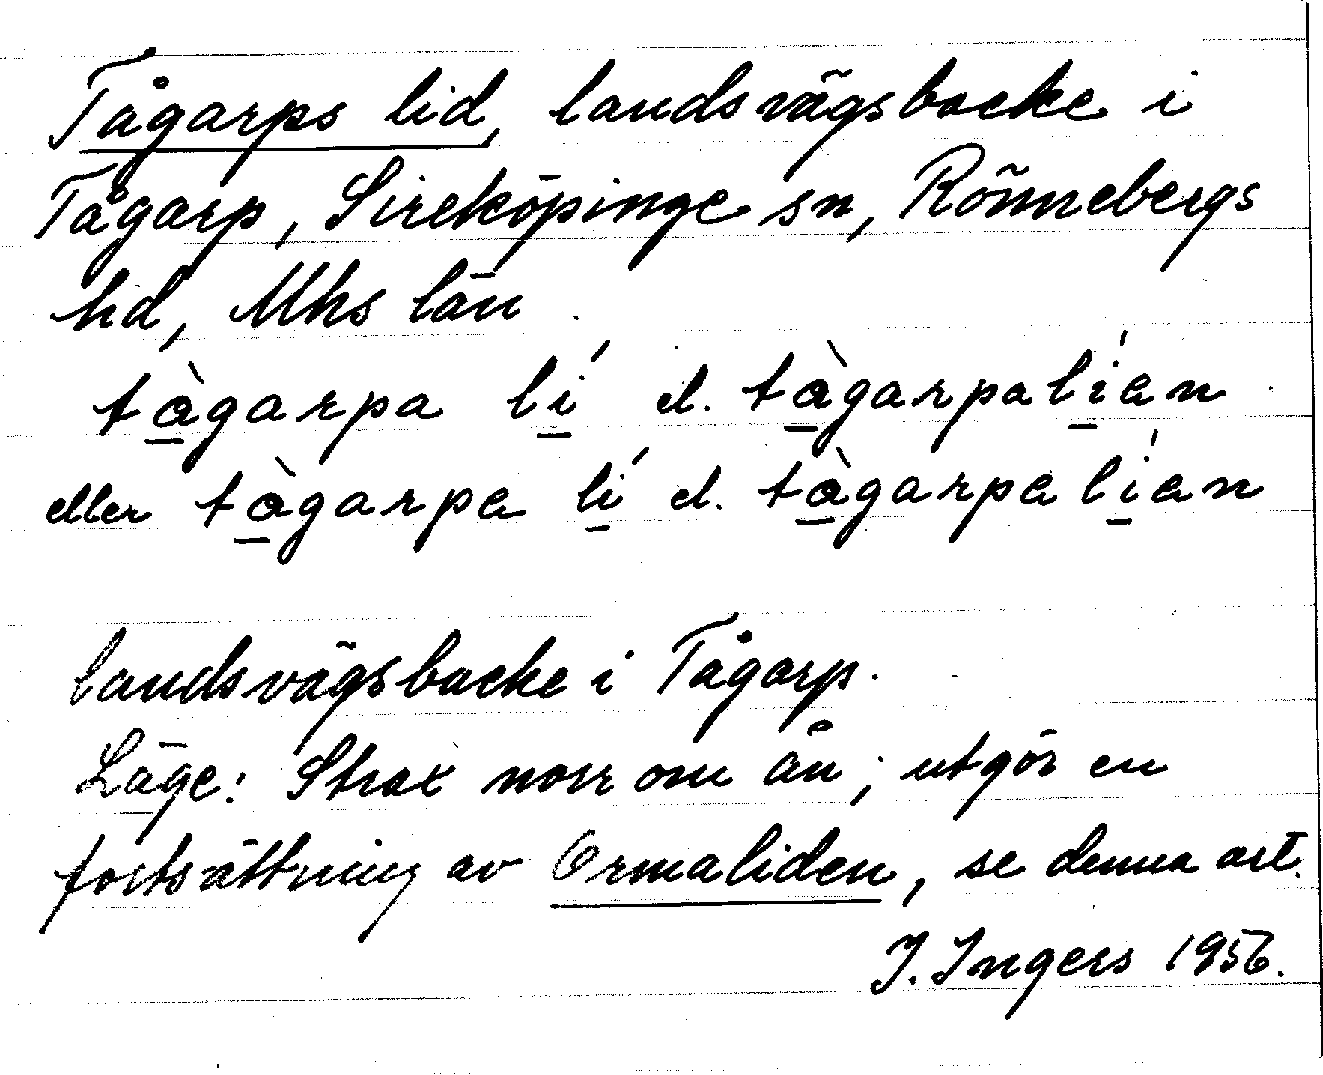 Tågarps lid, landsvägsbacke i
Tågarp, Sireköpinge sn, Rönnebergs
hd, Mhs län
tàgarpa lí el. tàgarpalían
eller tàgarpa lí el. tàgarpalían
landsvägsbacke i Tågarp.
Läge: Strax norr om ån; utgör en
fortsättning av Ormaliden, se denna art.
I. Ingers 1956.